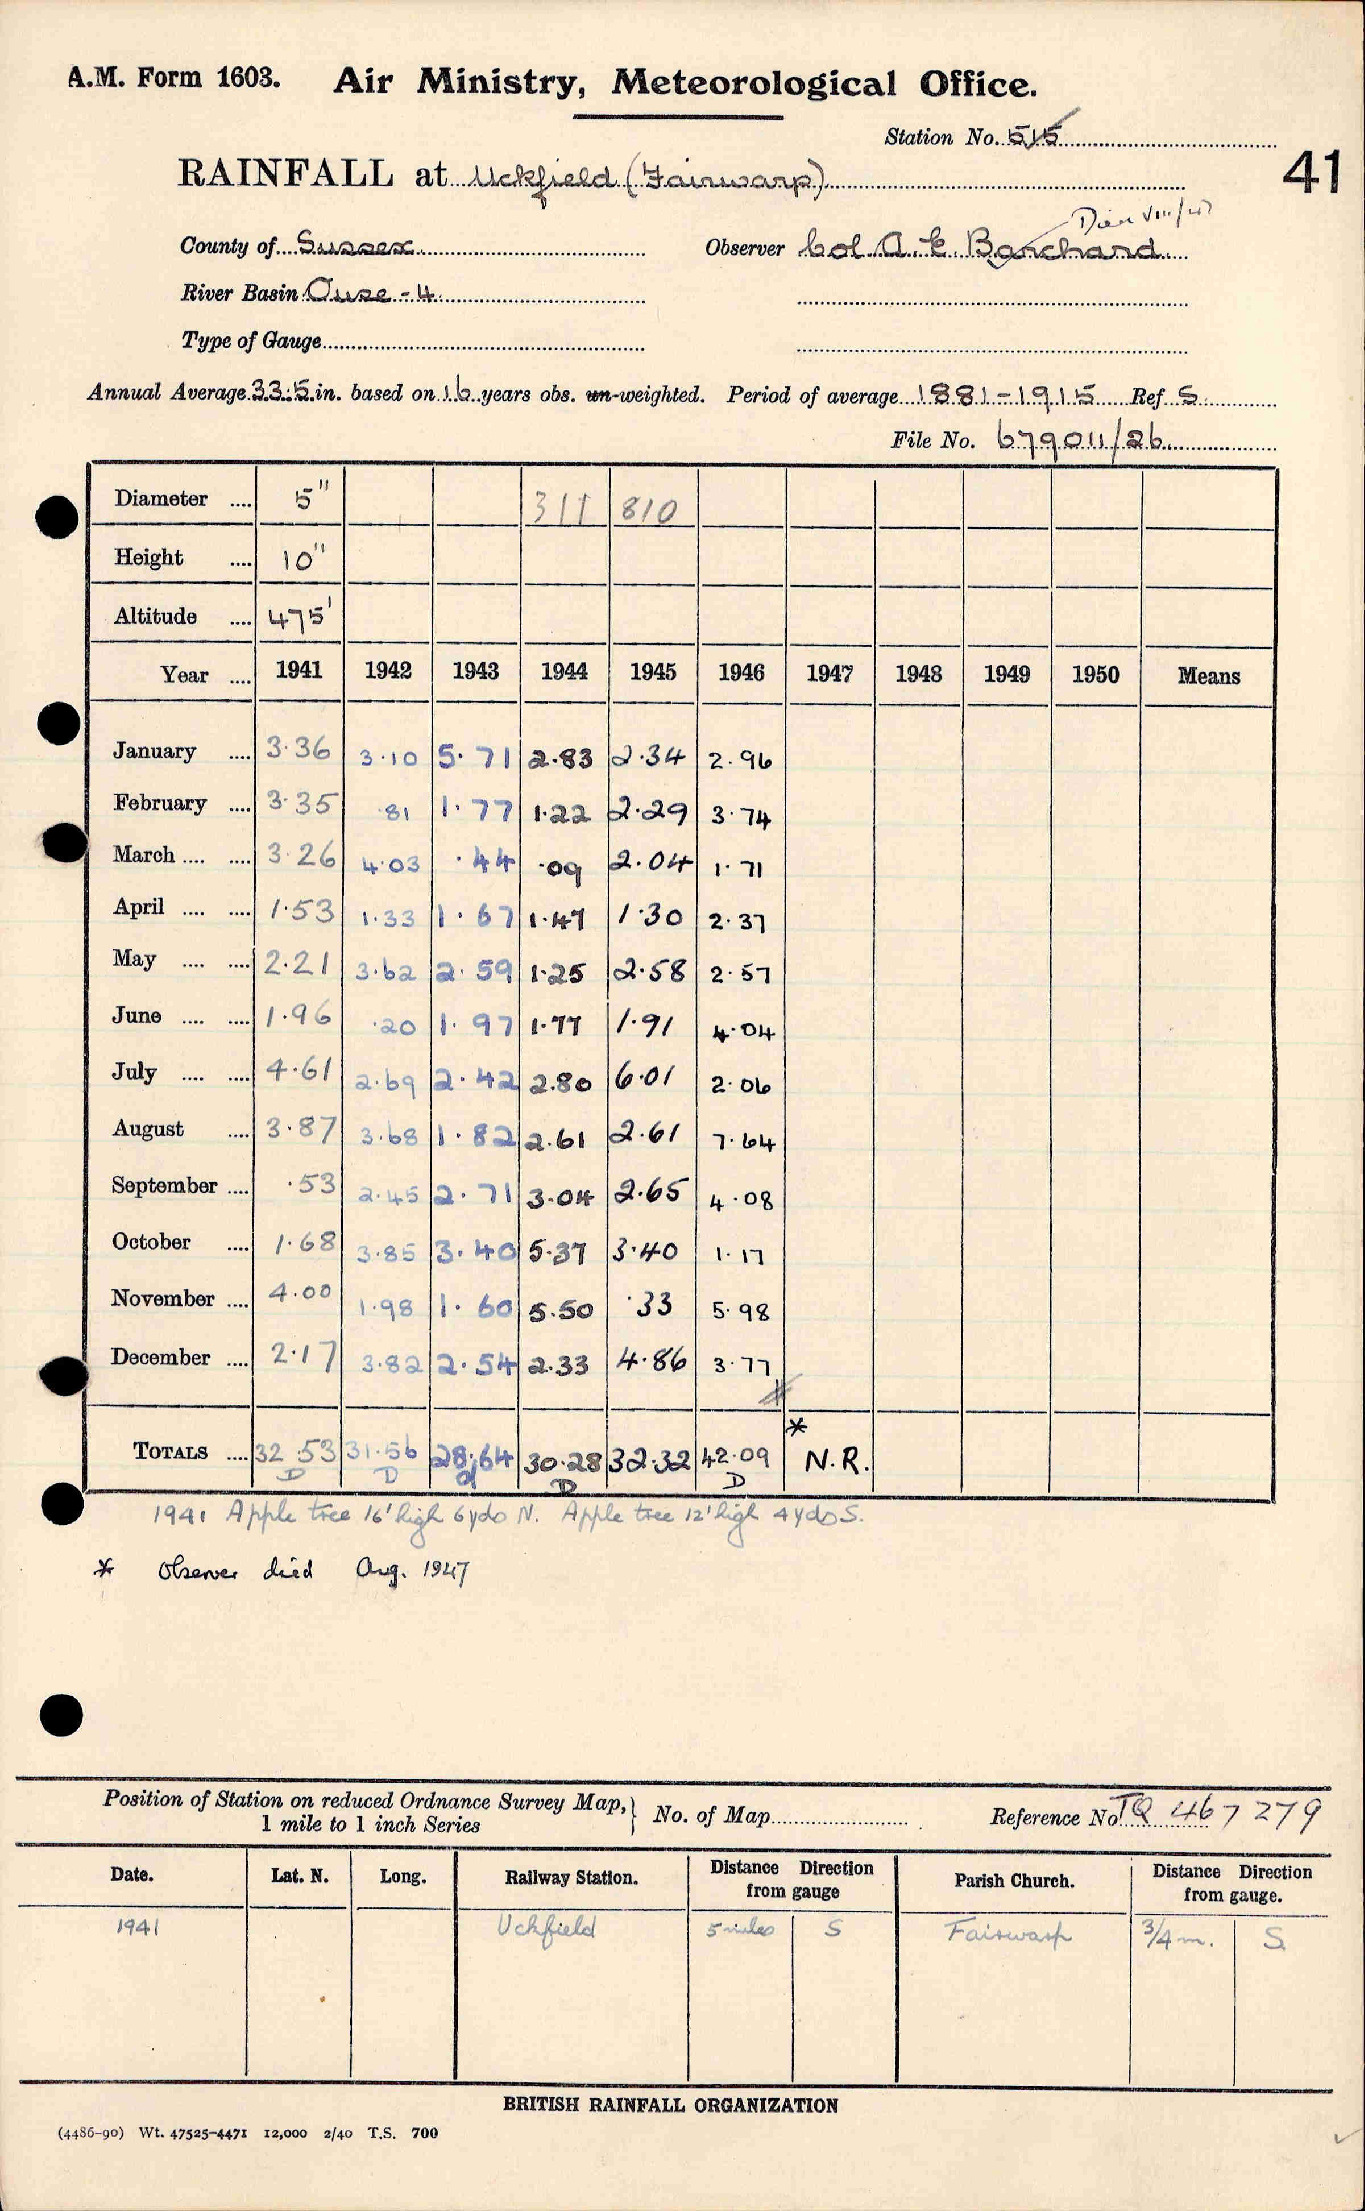 A.M. Form 1603. Air Ministry, Meteorological Office.
Station No. 515
41
RAINFALL at Uckfield (Fairwarp)
Died VIII/47
County of Sussex Observer Col. A. E. Barchard
River Basin Ouse - 4
Type of Gauge
Annual Average 33.5 in. based on 16 years obs. un-weighted. Period of average 1881-1915 Ref S.
File No. 679011/26
Diameter .... 5" 311 810
Height .... 10"
Altitude .... 475'
Year .... 1941 1942 1943 1944 1945 1946 1947 1948 1949 1950 Means
January .... 3.36 3.10 5.71 2.83 2.34 2.96
February .... 3.35 .81 1.77 1.22 2.29 3.74
March .... .... 3.26 4.03 .44 .09 2.04 1.71
April .... .... 1.53 1.33 1.67 1.47 1.30 2.37
May .... .... 2.21 3.62 2.59 1.25 2.58 2.57
June .... .... 1.96 .20 1.97 1.77 1.91 4.04
July .... .... 4.61 2.69 2.42 2.80 6.01 2.06
August .... 3.87 3.68 1.82 2.61 2.61 7.64
September .... .53 2.45 2.71 3.04 2.65 4.08
October .... 1.68 3.85 3.40 5.37 3.40 1.17
November .... 4.00 1.98 1.60 5.50 .33 5.98
December .... 2.17 3.82 2.54 2.33 4.86 3.77
TOTALS .... 32.53 31.56 28.64 30.28 32.32 42.09 * N.R.
D D d D D
1941 Apple tree 16' high 6yds N. Apple tree 12' high 4yds S.
* Observer died Aug. 1947
Position of Station on reduced Ordnance Survey Map, } No. of Map Reference No. TQ 467 279
1 mile to 1 inch Series
Date. Lat. N. Long. Railway Station. Distance Direction from gauge Parish Church. Distance Direction from gauge.
1941 Uckfield 5 miles S Fairwarp 3/4 m. S.
BRITISH RAINFALL ORGANIZATION
(4486-90) Wt. 47525-4471 12,000 2/40 T.S. 700